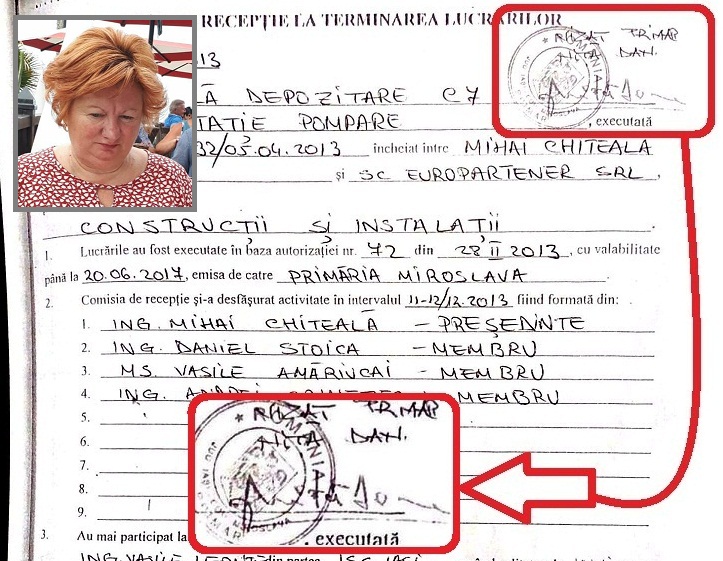 RECEPȚIE LA TERMINAREA LUCRĂRILOR
VIZAT PRIMAR
NIȚĂ DAN.
ROMÂNIA
JUD IAȘI
13
Ă DEPOZITARE C7
TAȚIE POMPARE , executată
32/03.04.2013 încheiat între MIHAI CHITEALA
și SC EUROPARTENER SRL,
CONSTRUCȚII ȘI INSTALAȚII
1. Lucrările au fost executate în baza autorizației nr. 72 din 28 II 2013, cu valabilitate
până la 20.06.2017, emisa de catre PRIMĂRIA MIROSLAVA
2. Comisia de recepție și-a desfășurat activitate în intervalul 11-12/12.2013 fiind formată din:
1. ING. MIHAI CHITEALĂ - PREȘEDINTE
2. ING. DANIEL STOICA - MEMBRU
3. MS. VASILE AMĂRIUCAI - MEMBRU
4. ING. MEMBRU
5.
6.
7.
8.
9.
VIZAT PRIMAR
NIȚĂ DAN.
ROMÂNIA
JUD IAȘI
MIROSLAVA
, executată
3. Au mai participat la
ING. VASILE din partea ISC IAȘI